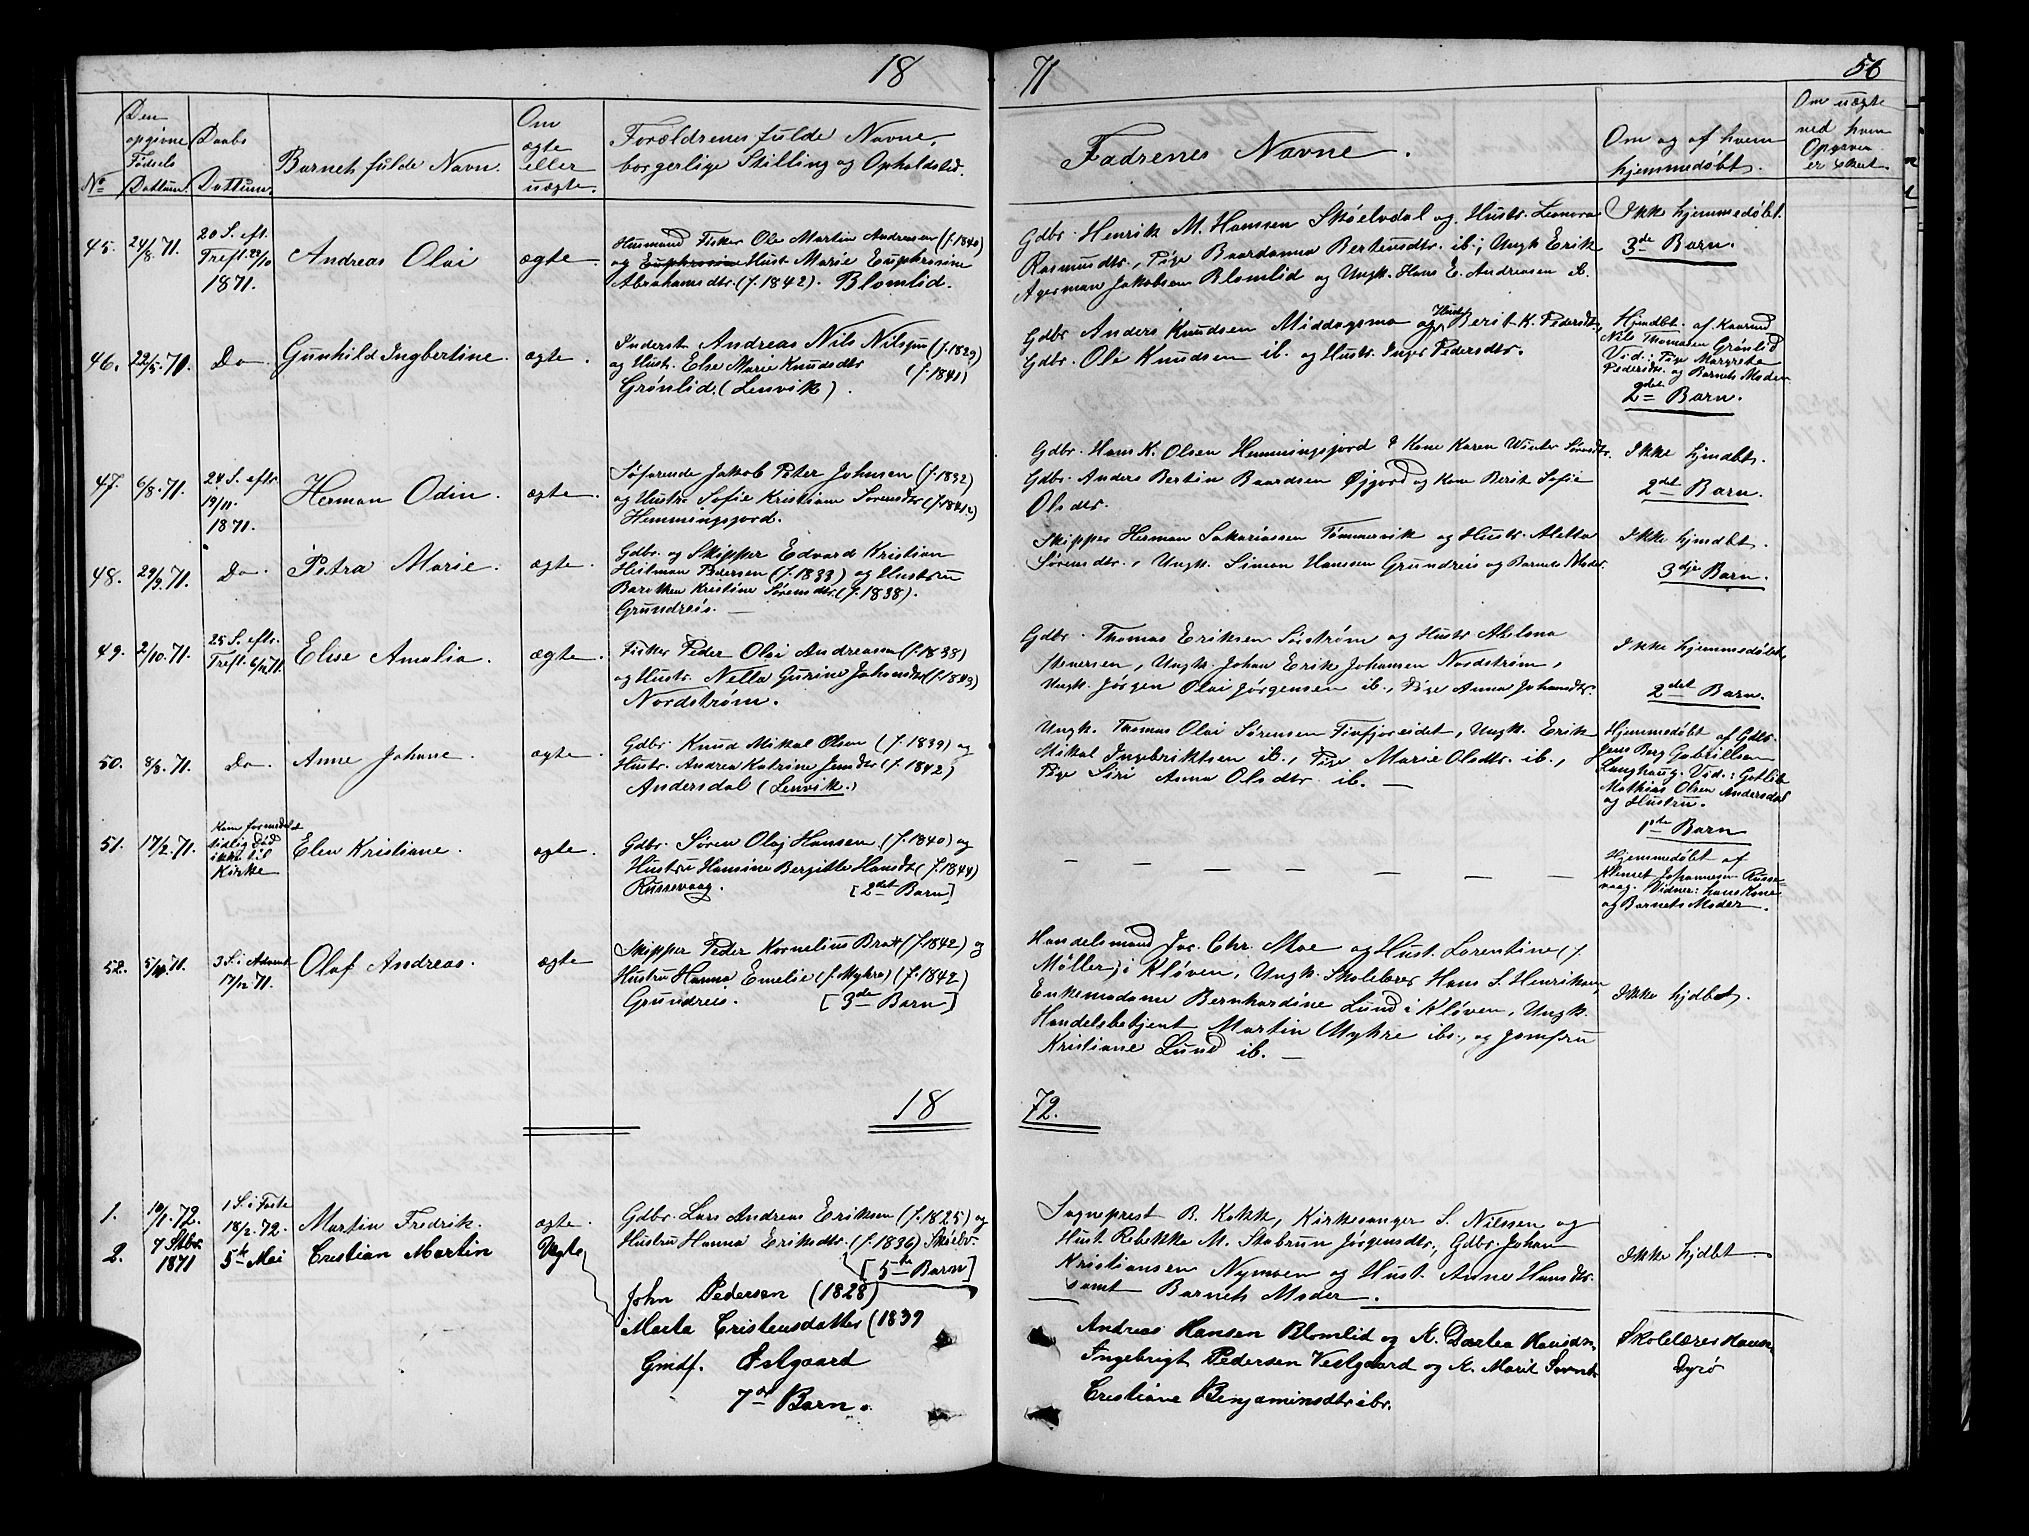 18
71
56
No
Den
opgivne
Fødsels
Dattum.
Daabs
Dattum.
Barnets fulde Navn.
Om
ægte
eller
uægte.
Forældrenes fulde Navne,
borgerlige Stilling og Opholdsted.
Fadrenes Navne.
Om og af hvem
hjemmedøbt.
Om uægte
ved hvem
Opgiven
er skeet.
45.
24/8.71.
20 S. eft.
Treft. 22/10
1871.
Andreas Olai
ægte.
Husmand Fisker Ole Martin Andersen (f. 1840)
og Hust. Marie Euphrosine
Abrahamsdtr. (f. 1842). Blomlid.
Gdbr. Henrik M. Hansen Sköelvdal og Hustr. Leonora
Rasmusdtr., Pige Baardanna Berteusdtr. ib.; Ungk. Erik
Agerman Jakobsen Blomlid og Ungk. Hans E. Andreasen ib.
Ikke hjemmedøbt.
3de Barn.
46.
22/5.71.
Do
Gunhild Ingbertine.
ægte.
Inderst Andreas Nils Nilsen (f. 1839)
og Hust. Else Marie Knudsdtr (f. 1841)
Grönlid, (Lenvik).
Gdbr Anders Knudsen Middagsmo og Hustr Berit K. Pedersdtr,
Gdbr. Ole Knudsen ib. og Hustr. Inger Pedersdtr.
Hjmdbt. af Kaarmd
Nils Thomasen Grönlid
Vid.: Pige Margreta
Pedersdtr. og Barnets Moder
2det Barn.
47.
6/8.71.
24 S. eftr.
19/11.
1871.
Herman Odin.
ægte.
Søfarende Jakob Peter Johnsen (f. 1832)
og Hustr. Sofie Kristiane Sørensdtr (f. 1841)
Hemmingsjord.
Gdbr. Hans K. Olsen Hemmingsjord & Kone Karen Winter Sørensdtr.
Gdbr. Anders Bertin Baardsen Øjjord og Kone Berit Sofie
Olsdtr.
Ikke hjmdbt.
2det Barn.
48.
29/9.71.
Do.
Petra Marie.
ægte.
Gdbr. og Skipper Edvard Kristian
Heilman Pedersen (f. 1833) og Hustru
Barokken Kristine Sörensdtr. (f. 1838).
Grundreis.
Skipper Herman Sakariassen Tömmervik og Hustr. Aletta
Sörensdtr., Ungk. Simon Hanssen Grundreis og Barnets Moder.
Ikke hjmdbt.
3dje Barn.
49.
2/10.71.
25 S. eftr.
Treft. 6/12 71.
Elise Amalia.
ægte.
Fisker Peder Olai Andreassen (f. 1838)
og Hustr. Nella Gurine Johansdtr (f. 1843)
Nordström.
Gdbr. Thomas Eriksen Sörström og Hustr Akelena
Iversen, Ungk. Johan Erik Johansen Nordström,
Ungk. Jörgen Olai Jörgensen ib., Pige Anna Johansdtr.
Ikke hjemmedøbt,
2det Barn.
50.
8/8.71.
Do
Anne Johane.
ægte.
Gdbr. Knud Mikal Olsen (f. 1839) og
Hustr. Andrea Katrine Jensdtr (f. 1842)
Andersdal (Lenvik.)
Ungk. Tomas Olai Sörensen Finfjoreidet, Ungk. Erik
Mikal Ingebriktsen ib., Pige Marie Olsdtr. ib.,
Pige Siri Anna Olsdtr. ib.
Hjemmedøbt af Gdbr.
Jens Berg Gabrillsen
Langhaug. Vid.: Gotlib
Mathias Olsen Andersdal
og Hustru.
1ste Barn
51.
17/2.71.
Kom formedelst
tidlig Död
ikke til
Kirke
Elen Kristiane.
ægte.
Gdbr. Sören Olaj Hansen (f. 1840) og
Hustru Hansine Bergitte Hansdtr (f. 1844)
Russevaag. [2det Barn]
— — — — — —
Hjemmedøbt af
Klemet Johannesen Russe-
vaag. Vidner: hans Kone
og Barnets Moder.
52.
5/10.71.
3 S. i Advent
17/12.71.
Olaf Andreas.
ægte
Skipper Peder Kornelius Brox (f. 1842) og
Hustru Hanna Emelie (f. Mykre) (f. 1842)
Grundreis. [3de Barn]
Handelsmand Joc. Chr. Moe og Hust. Lorentine (f.
Möller) i Klöven, Ungk. Skolelærer Hans S. Henriksen,
Enkemadame Bernhardine Lund i Klöven, Ungk.
Handelsbetjent Martin Mykre ibs., og Jomfru
Kristiane Lund ib.
Ikke hjdbt.
18
72.
1.
10/1.72.
1 S. i Faste
18/2.72.
Martin Fredrik.
ægte.
Gdbr. Lars Andreas Eriksen (f. 1825) og
Hustru Hanna Eriksdtr. (f. 1836) Sköelv.
[5te Barn]
Sogneprest B. Kokk, Kirkesanger S. Nilssen og
Hust. Rebekka M. Skabrun Jørgensdtr, Gdbr. Johan
Kristiansen Nymoen og Hust. Anne Hansdtr.
samt Barnets Moder.
Ikke hjdbt
2.
7 Skbr.
1871
5te Mai
Cristian Martin
Ægte
John Pedersen (1828)
Marta Cristensdatter (1839
Gmdf. Østgaard
7de Barn.
Andreas Hansen Blomlid og K. Dortea Hansdtr,
Ingebrigt Pedersen Vestgaard og K. Marit
Cristiane Benjaminsdtr ibr.
Skolelærer Hansen
Dyrö